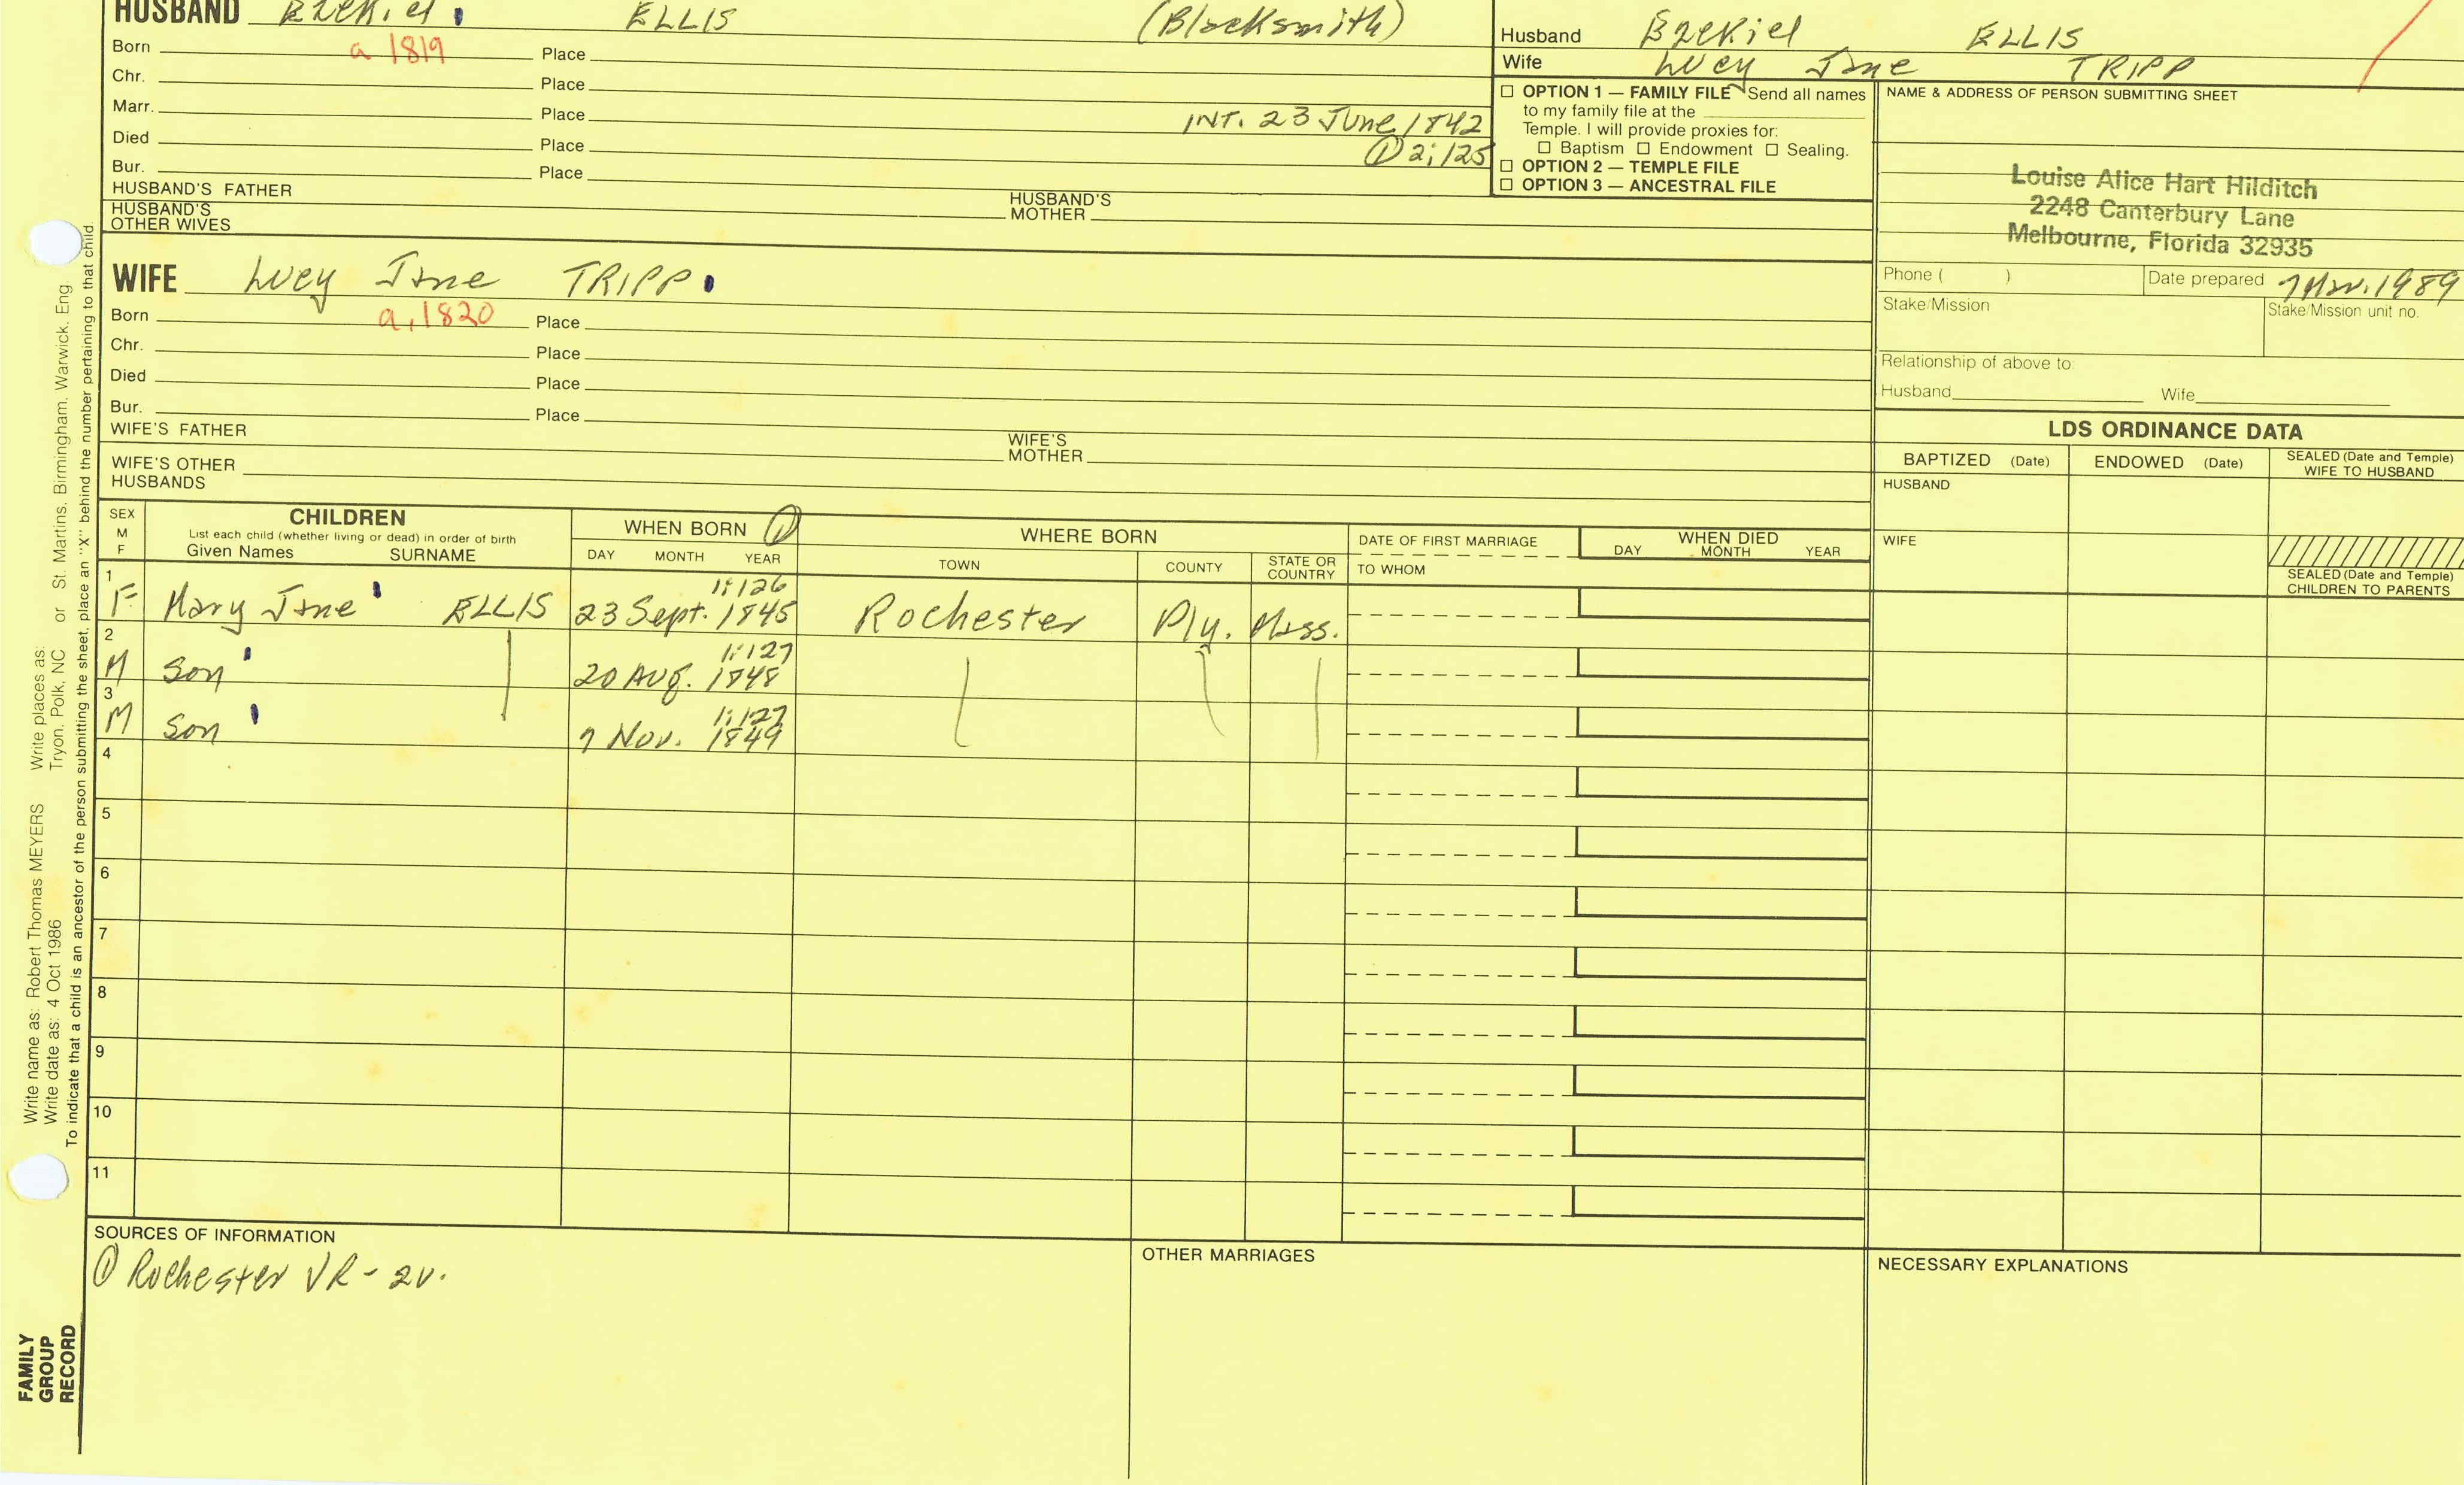 HUSBAND Ezekiel ELLIS (Blacksmith)
Born a 1819 Place
Chr. Place
Marr. Place INT. 23 June 1842
Died Place ① 2:125
Bur. Place
HUSBAND'S FATHER HUSBAND'S MOTHER
HUSBAND'S OTHER WIVES
Husband Ezekiel ELLIS
Wife Lucy Jane TRIPP
☐ OPTION 1 — FAMILY FILE Send all names
to my family file at the
Temple. I will provide proxies for:
☐ Baptism ☐ Endowment ☐ Sealing.
☐ OPTION 2 — TEMPLE FILE
☐ OPTION 3 — ANCESTRAL FILE
NAME & ADDRESS OF PERSON SUBMITTING SHEET
Louise Alice Hart Hilditch
2248 Canterbury Lane
Melbourne, Florida 32935
Phone ( ) Date prepared 7 Mar. 1989
Stake/Mission Stake/Mission unit no.
Relationship of above to:
Husband Wife
WIFE Lucy Jane TRIPP
Born a. 1820 Place
Chr. Place
Died Place
Bur. Place
WIFE'S FATHER WIFE'S MOTHER
WIFE'S OTHER HUSBANDS
LDS ORDINANCE DATA
BAPTIZED (Date) ENDOWED (Date) SEALED (Date and Temple) WIFE TO HUSBAND
HUSBAND
WIFE
SEALED (Date and Temple) CHILDREN TO PARENTS
SEX M F
CHILDREN
List each child (whether living or dead) in order of birth
Given Names SURNAME
WHEN BORN ①
DAY MONTH YEAR
WHERE BORN
TOWN COUNTY STATE OR COUNTRY
DATE OF FIRST MARRIAGE
TO WHOM
WHEN DIED
DAY MONTH YEAR
1 1:126
F Mary Jane ELLIS 23 Sept. 1845 Rochester Ply. Mass.
2 1:127
M Son 20 Aug. 1848
3 1:127
M Son 7 Nov. 1849
4
5
6
7
8
9
10
11
SOURCES OF INFORMATION
① Rochester VR - 2v.
OTHER MARRIAGES
NECESSARY EXPLANATIONS
Write name as: Robert Thomas MEYERS Write places as:
Write date as: 4 Oct 1986 Tryon, Polk, NC or St. Martins, Birmingham, Warwick, Eng
To indicate that a child is an ancestor of the person submitting the sheet, place an "X" behind the number pertaining to that child.
FAMILY
GROUP
RECORD